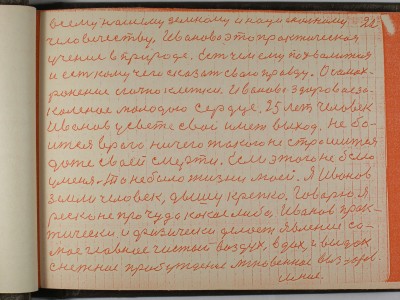 всему нашему земному и национальному 22
человечеству. Иванова это практическая
учение в природе. Есть чем ему похвалится
и есть кому чего сказать свою правду. О самох-
ранение слаткo клетки. Иванова здоровое за-
каленое молодою сердце. 25 лет человек
Иванов у света свой имеет выход. не бо-
ится врага ничего такого не страшится
даже своей смерти. Если этого не было
у меня. то не было жизни моей. Я Иванов
земли человек, дышу крепко. Говорю я
резко не про чудо какое либо. Иванов прак-
тически и физически делает явление са-
мое главное чистый воздух, вдох и выдох
снежное пробуждение мгновенное выздоров
ление.